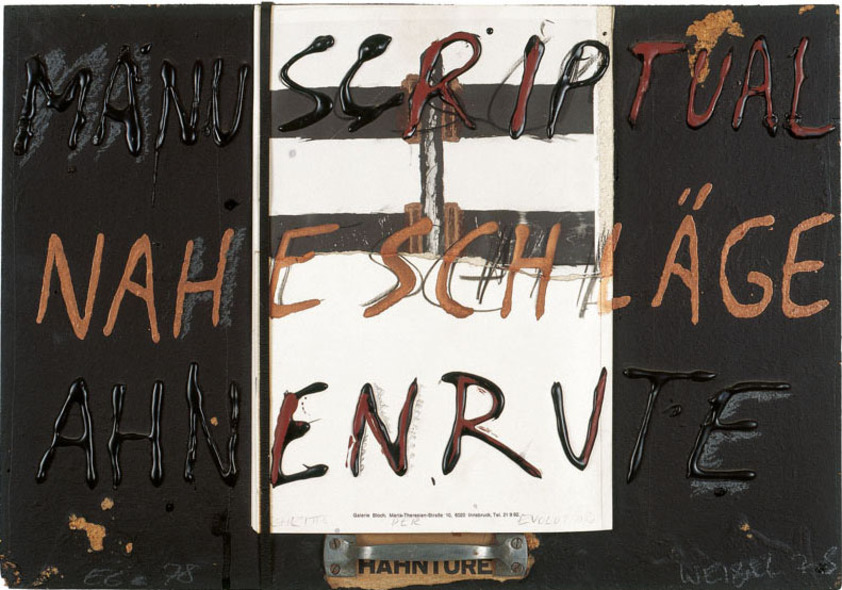 MANUSCRIPTUAL
NAHESCHLÄGE
AHNENRUTE
Galerie Bloch, Maria-Theresien-Straße 10, 6020 Innsbruck, Tel. 21 9 82
PER EVOLUTING
HAHNTÜRE
EG. 78 WEIBEL 78